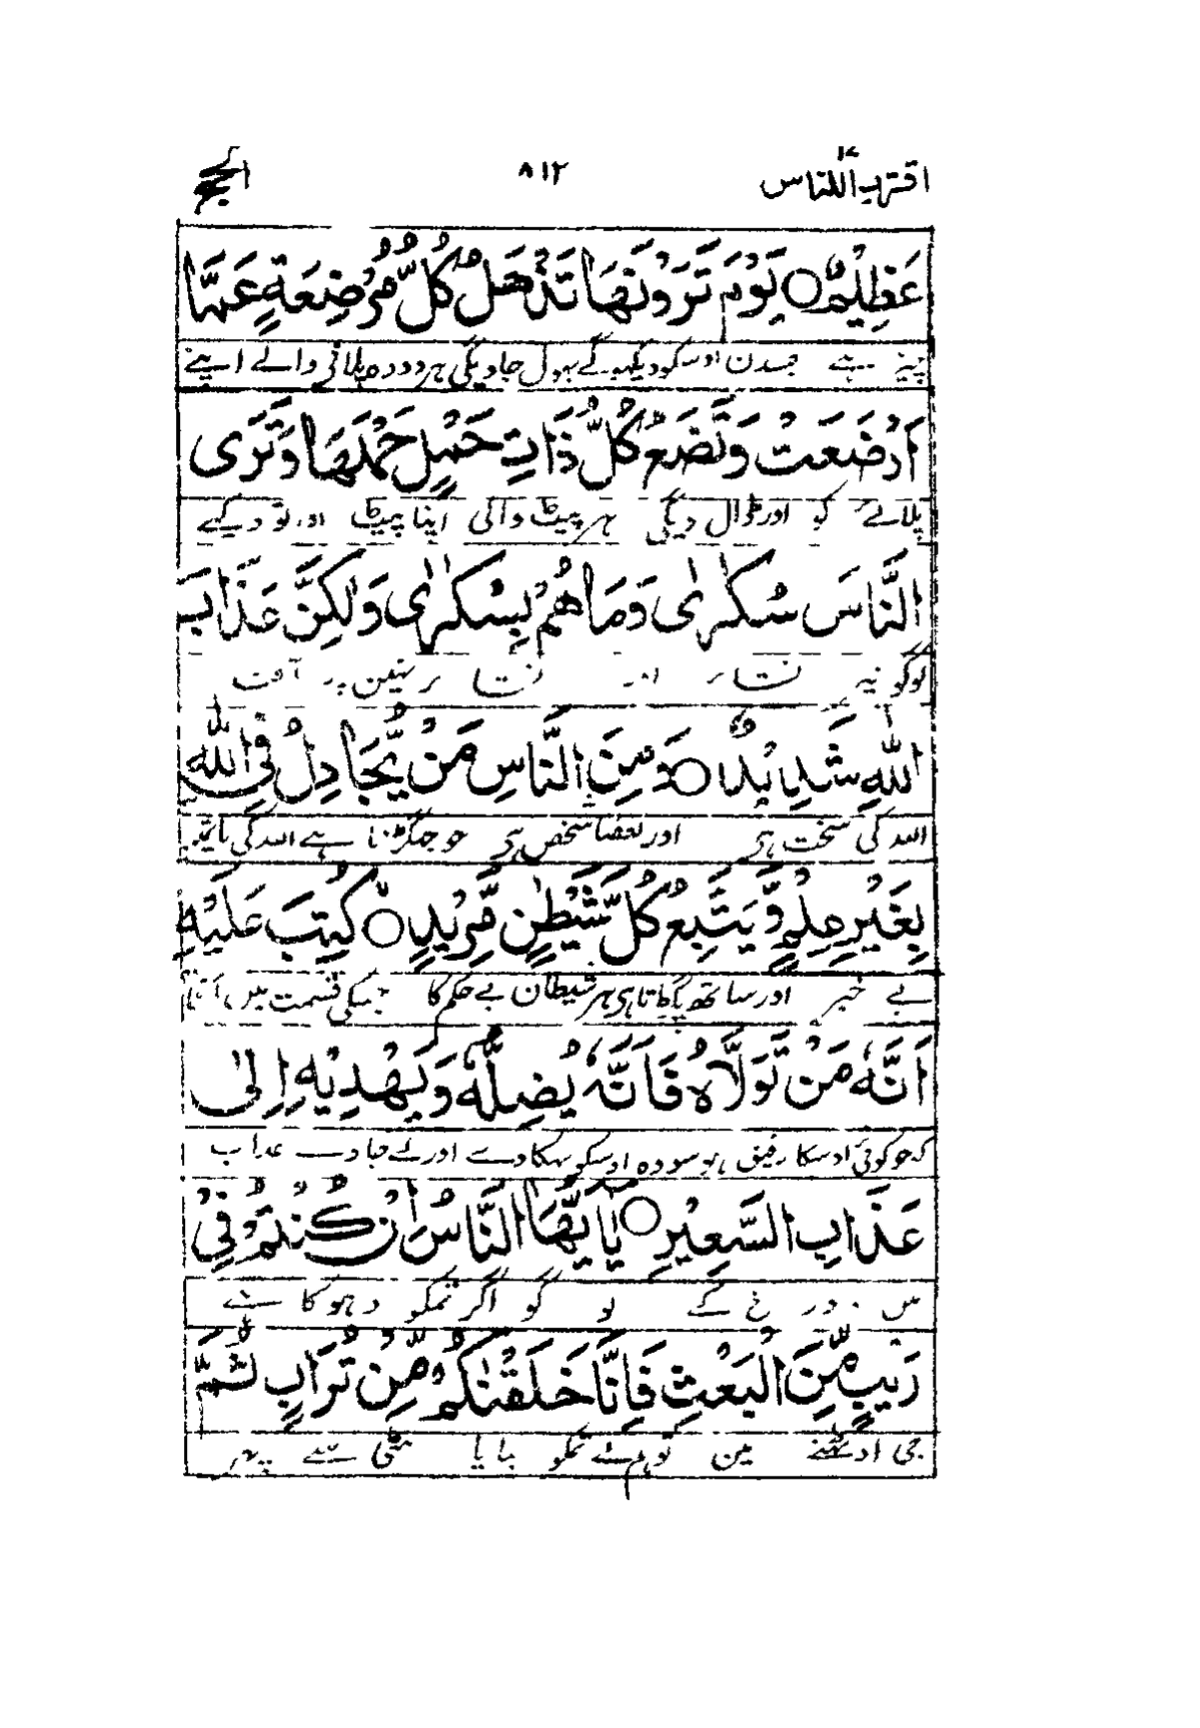 اقترب للناس ١٧ ٨١٢ الحج
عَظِيْمٌ ○ يَوْمَ تَرَوْنَهَا تَذْهَلُ كُلُّ مُرْضِعَةٍ عَمَّا
چیز ہے جسدن اوسکو دیکھوگے بہول جاویگی ہر دودھ پلانی والے اپنے
اَرْضَعَتْ وَتَضَعُ كُلُّ ذَاتِ حَمْلٍ حَمْلَهَا وَتَرَى
پلائے کو اور ڈال دیگی ہر پیٹ والی اپنا پیٹ اور تو دیکہے
النَّاسَ سُكٰرٰى وَمَا هُمْ بِسُكٰرٰى وَلٰكِنَّ عَذَابَ
لوگونپر نشا اور نشا نہین پر آفت
اللّٰهِ شَدِيْدٌ ○ وَمِنَ النَّاسِ مَنْ يُّجَادِلُ فِى اللّٰهِ
اللہ کی سخت ہی اور بعضا شخص ہی جو جہگڑتا ہے اللہ کی بات پر
بِغَيْرِ عِلْمٍ وَّيَتَّبِعُ كُلَّ شَيْطٰنٍ مَّرِيْدٍ ○ كُتِبَ عَلَيْهِ
بے خبر اور ساتھ پکڑتا ہی ہر شیطان بے حکم کا جسکی قسمت میں
اَنَّهٗ مَنْ تَوَلَّاهُ فَاَنَّهٗ يُضِلُّهٗ وَيَهْدِيْهِ اِلٰى
کہ جو کوئی اوسکا رفیق ہو سو وہ اوسکو بہکاوے اور لے جاوے عذاب
عَذَابِ السَّعِيْرِ ○ يٰۤاَيُّهَا النَّاسُ اِنْ كُنْتُمْ فِىْ
مین دوزخ کے لوگو اگر تمکو دہوکا ہے
رَيْبٍ مِّنَ الْبَعْثِ فَاِنَّا خَلَقْنٰكُمْ مِّنْ تُرَابٍ ثُمَّ
جی اوٹہنے مین تو ہمنے تمکو بنایا مٹی سے پہر